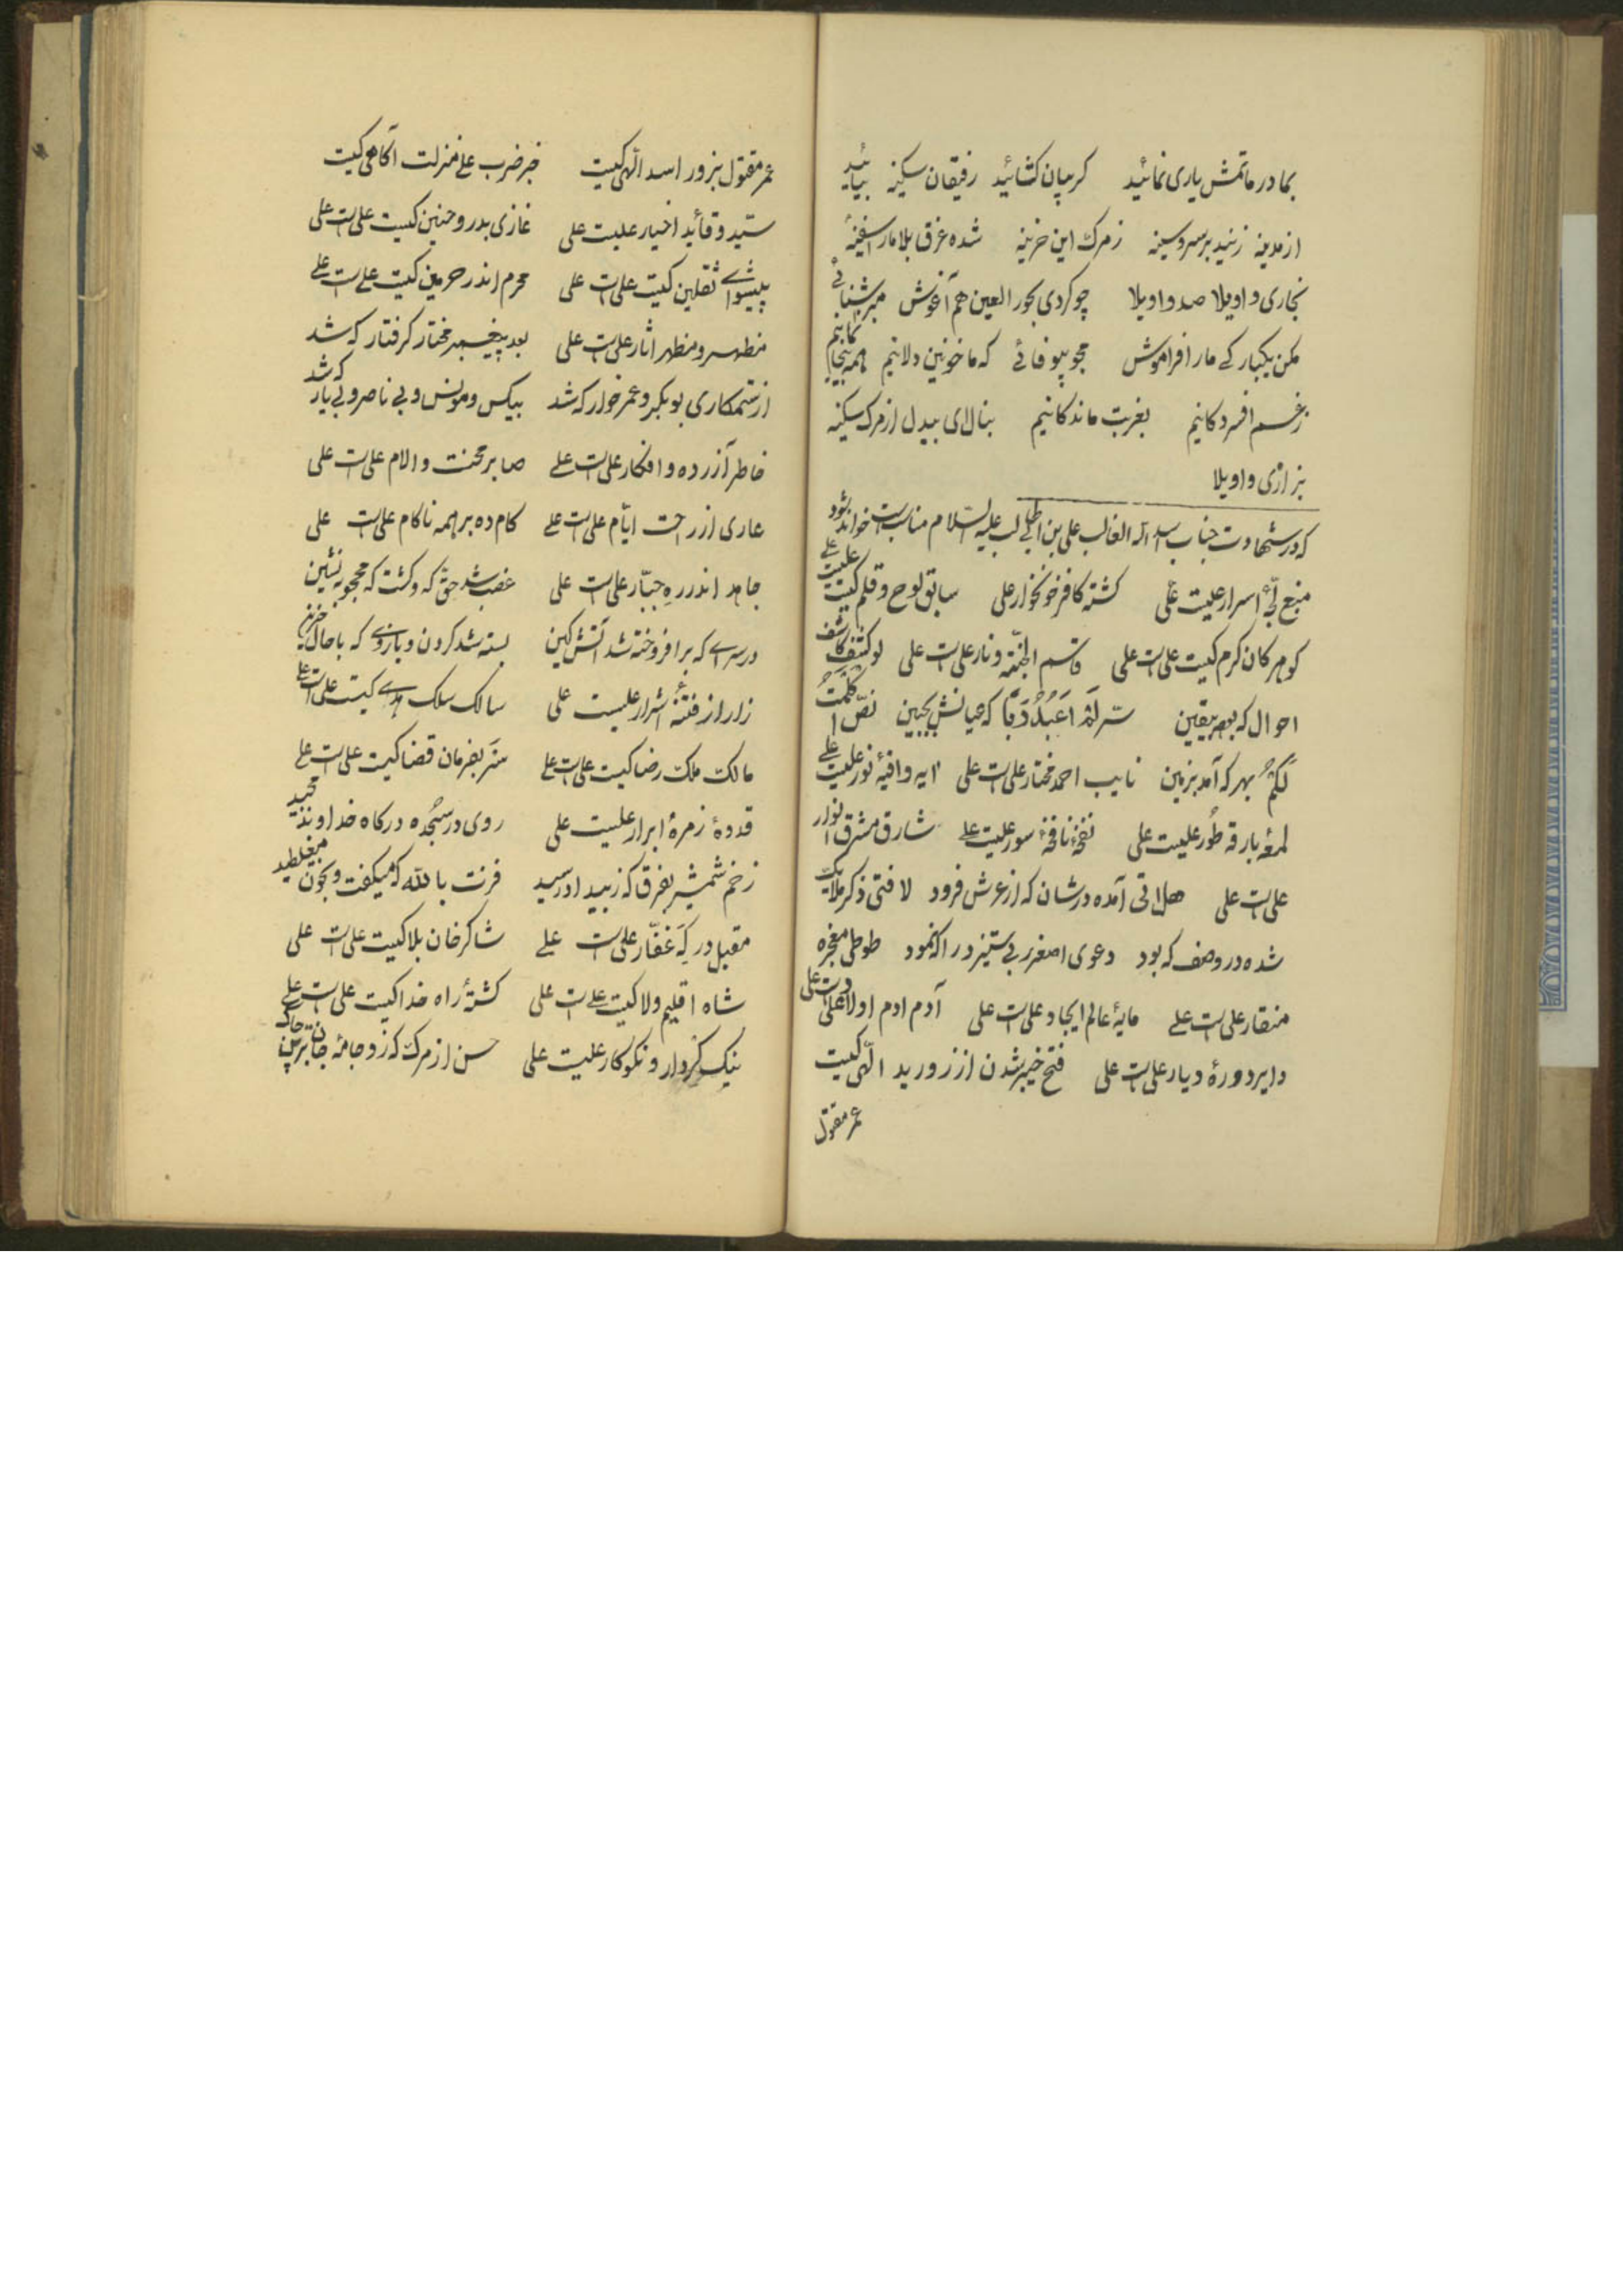 بما در ماتمش یاری نمائید کریبان کشائید رفیقان سکینه بیائید
از مدینه زنید بر سر و سینه ز مرک این حزینه شده غرق بلا مارا سفینه
بخاری واویلا صد واویلا چو کردی بحور العین هم آغوش
مکن یکبار کے مارا فراموش مجو بیوفائے که ما خونین دلانیم همه
ز غم افسردکانیم بغربت ماندکانیم بنال ای بیدل از مرک سکینه
بزاری واویلا
که در شهادت جناب اسد اله الغالب علی بن ابیطالب علیه السلام مناسبست خوانده شود
منبع اسرار علیست علی کشنهٔ کافر خونخوار علی سابق لوح و قلم کیست علیست علے
کوهر کان کرم کیست علی است علی قاسم الجنّه و نار علی است علی لو کشف کاشف
احوال که بود بیقین سرّ لم اعبد ربّا که عیانش بجبین نصّ اکملت
لکم بهر که آمد بزمین نایب احمد مختار علی است علی ایه وافیهٔ نور علیست علے
لمعهٔ بارقه طور علیست علی نفخهٔ نافخهٔ صور علیست علے شارق مشرق انوار
علی است علی هل اتی آمده در شان که از عرش فرود لا فتی ذکر ملایک
شده در وصف که بود دعوی اصغر ربی ستیز در انمود طوطی معجزه
منقار علی است علے مایهٔ عالم ایجاد علی است علی آدم ادم اولاد علی است علی
دایر دورهٔ دیار علی است علی فتح خیبر شدن از زور ید الّهی کیست
عمر مقتول
عمر مقتول بزور اسد الّهی کیست خبر ضرب علے منزلت آکاهی کیست
سیّد و قائد اخیار علیست علی غازی بدر و حنین کیست علی است علی
پیشوائے ثقلین کیست علی است علی محرم اندر حرمین کیست علے است علے
مظهر و مظهر اثار علی است علی بعد پیغمبر مختار کرفتار که شد
از ستمکاری بوبکر و عمر خوار که شد بیکس و مونس و بی ناصر و بی یار که شد
خاطر آزرده و افکار علی است علے صابر محنت و الام علی است علی
عاری از راحت ایّام علی است علے کام ده بر همه ناکام علی است علی
جاهد اندر ره جبّار علی است علی غصب شد حق که و کشت که محجوبه نشین
در سراے که برافروخته شد آتش کین بسته شد کردن و بازوے که با حال حزین
زار از فتنهٔ اشرار علیست علی سالک سلک هدے کیست علی است علے
مالک ملک رضا کیست علی است علے سر بفرمان قضا کیست علی است علے
قدوهٔ زمرهٔ ابرار علیست علی روی در سجده درکاه خداوند مجید
زخم شمشیر بفرق که ز بیداد رسید فزت بالله که میکفت و بخون میغلطید
مقبل درکه غفّار علی است علے شاکر خان بلا کیست علی است علی
شاه اقلیم ولا کیست علے است علی کشتهٔ راه خدا کیست علی است علے
نیک کردار و نکوکار علیست علی حسن از مرک که زد جامهٔ جان بر تن چاک